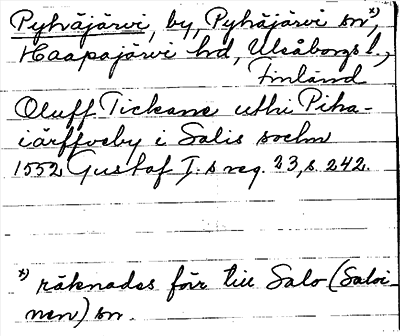 Pyhäjärvi, by, Pyhäjärvi sn*),
Haapajärvi hd, Uleåborgs l.,
Finland
Oluff Tickane uthi Piha-
iärffueby i Salis sochn
1552 Gustaf I:s reg. 23, s. 242.
*) räknades förr till Salo (Saloi-
nen) sn.